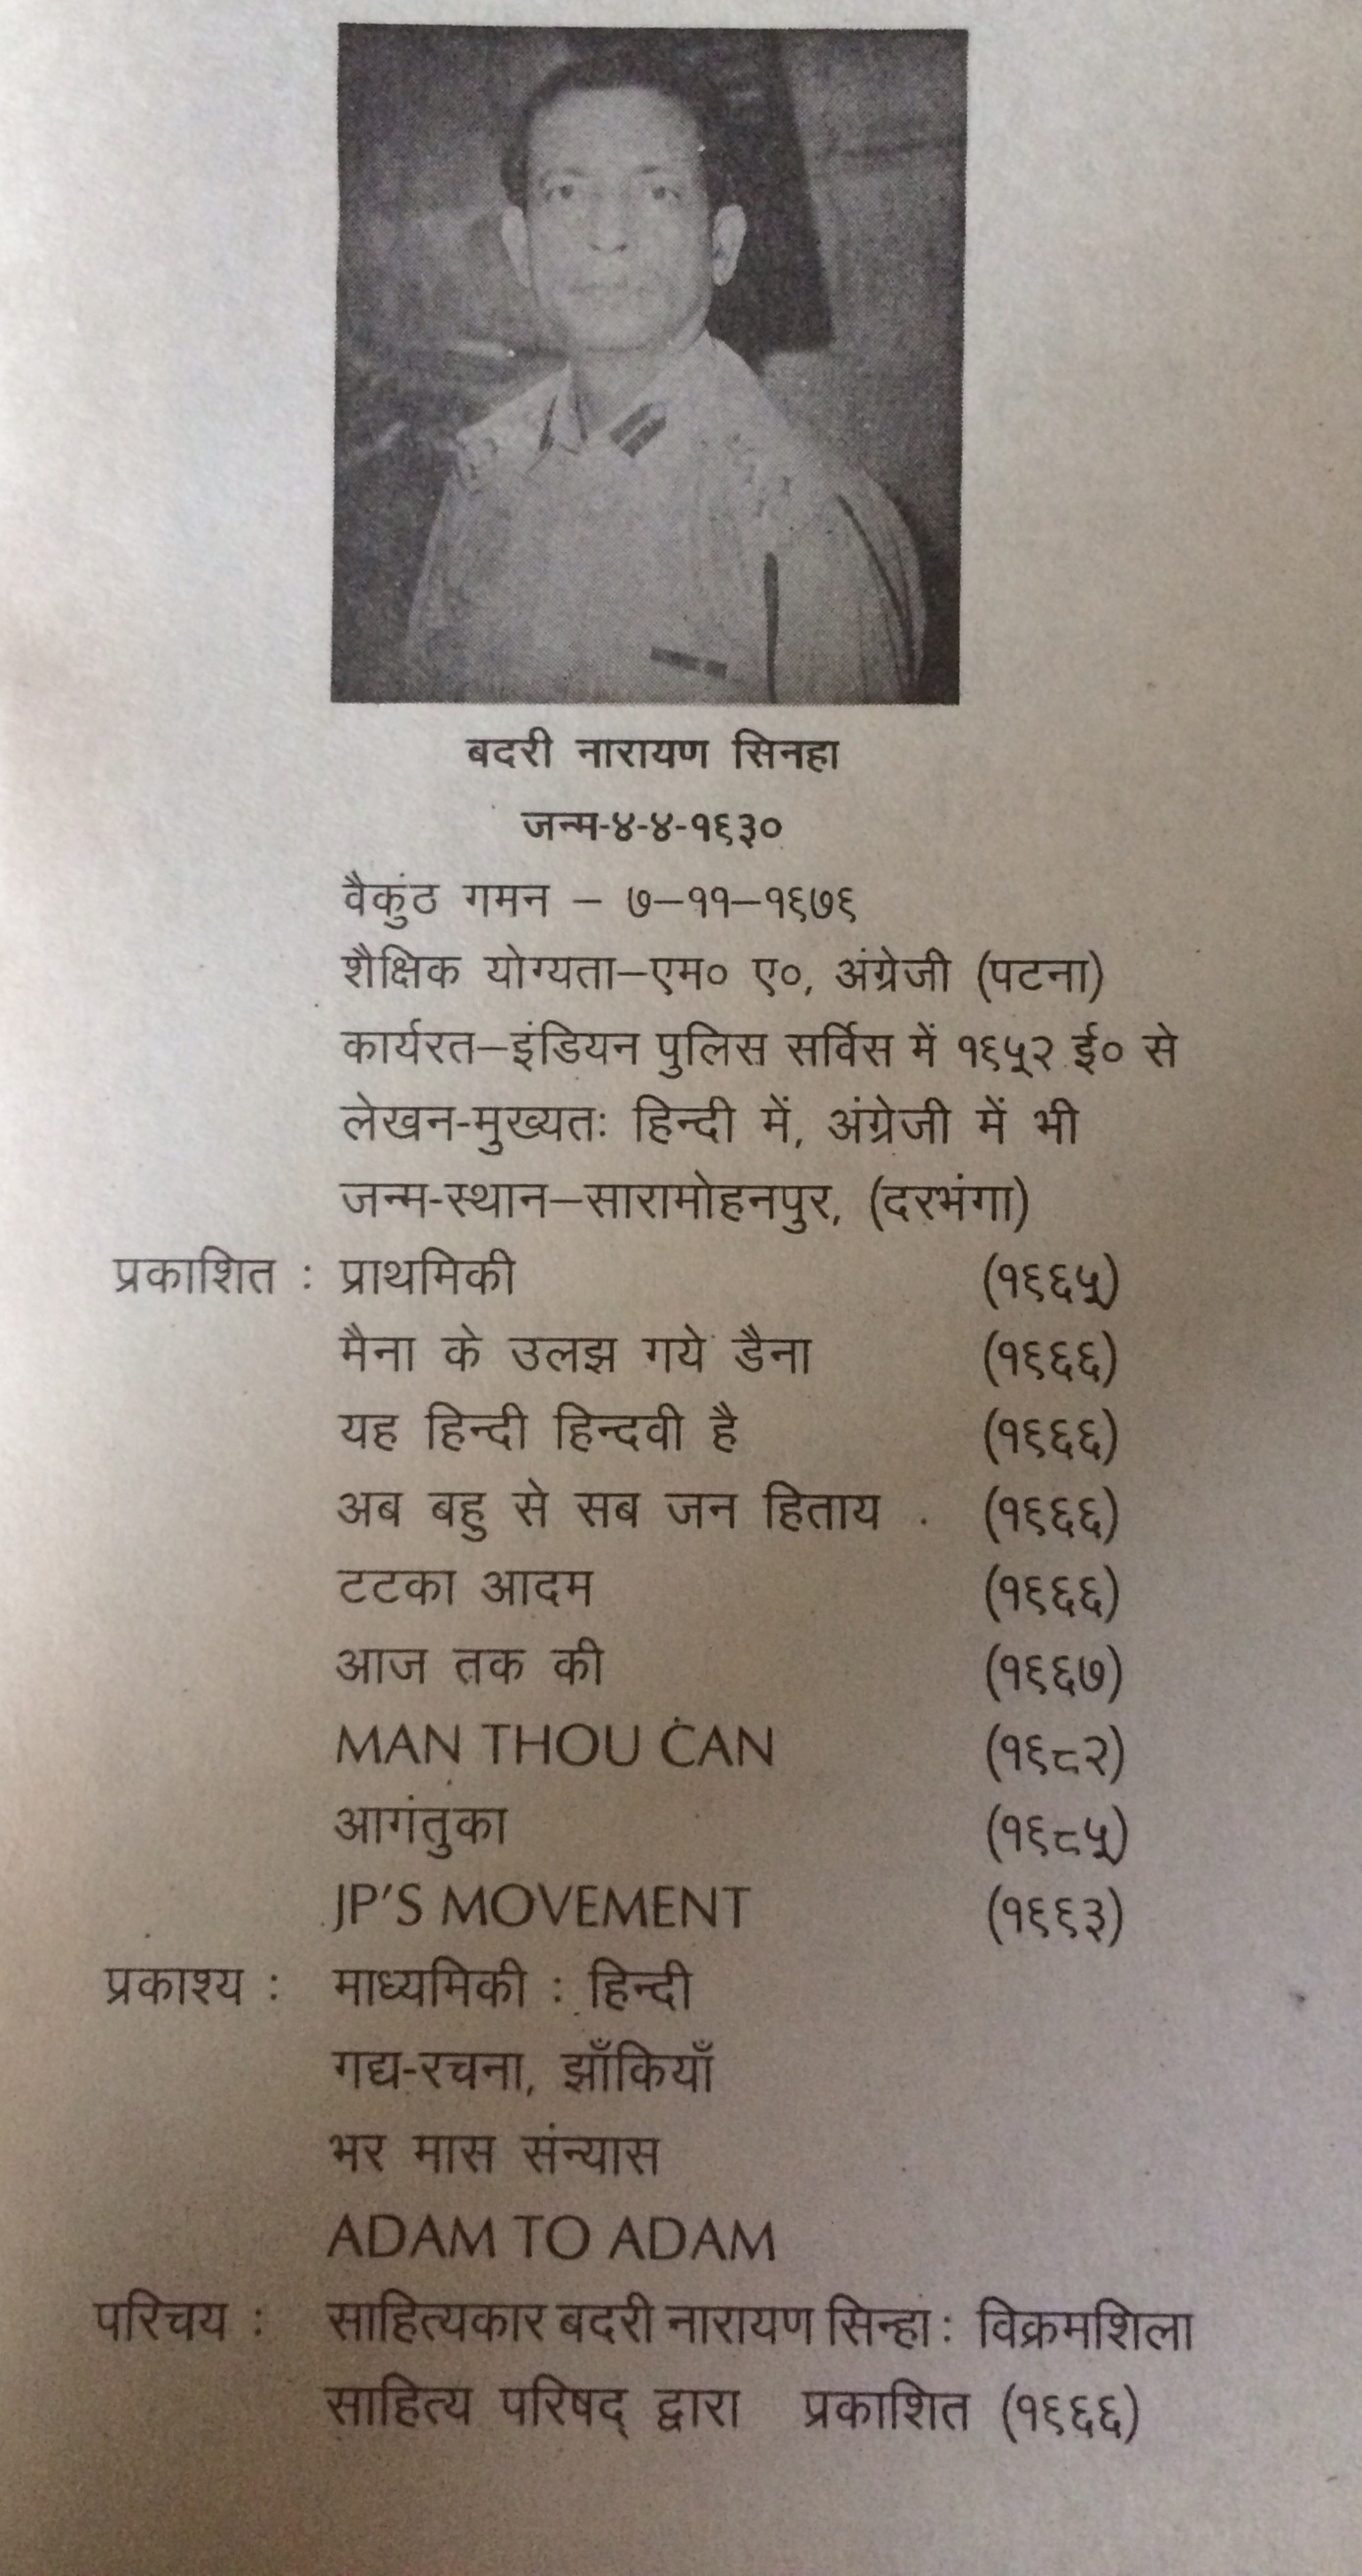 बदरी नारायण सिनहा
जन्म-४-४-१९३०
वैकुंठ गमन – ७–११–१९७९
शैक्षिक योग्यता–एम० ए०, अंग्रेजी (पटना)
कार्यरत–इंडियन पुलिस सर्विस में १९५२ ई० से
लेखन-मुख्यतः हिन्दी में, अंग्रेजी में भी
जन्म-स्थान–सारामोहनपुर, (दरभंगा)
प्रकाशित : प्राथमिकी (१९६५)
मैना के उलझ गये डैना (१९६६)
यह हिन्दी हिन्दवी है (१९६६)
अब बहु से सब जन हिताय (१९६६)
टटका आदम (१९६६)
आज तक की (१९६७)
MAN THOU CAN (१९८२)
आगंतुका (१९८५)
JP'S MOVEMENT (१९९३)
प्रकाश्य : माध्यमिकी : हिन्दी
गद्य-रचना, झाँकियाँ
भर मास संन्यास
ADAM TO ADAM
परिचय : साहित्यकार बदरी नारायण सिन्हा : विक्रमशिला
साहित्य परिषद् द्वारा प्रकाशित (१९६६)